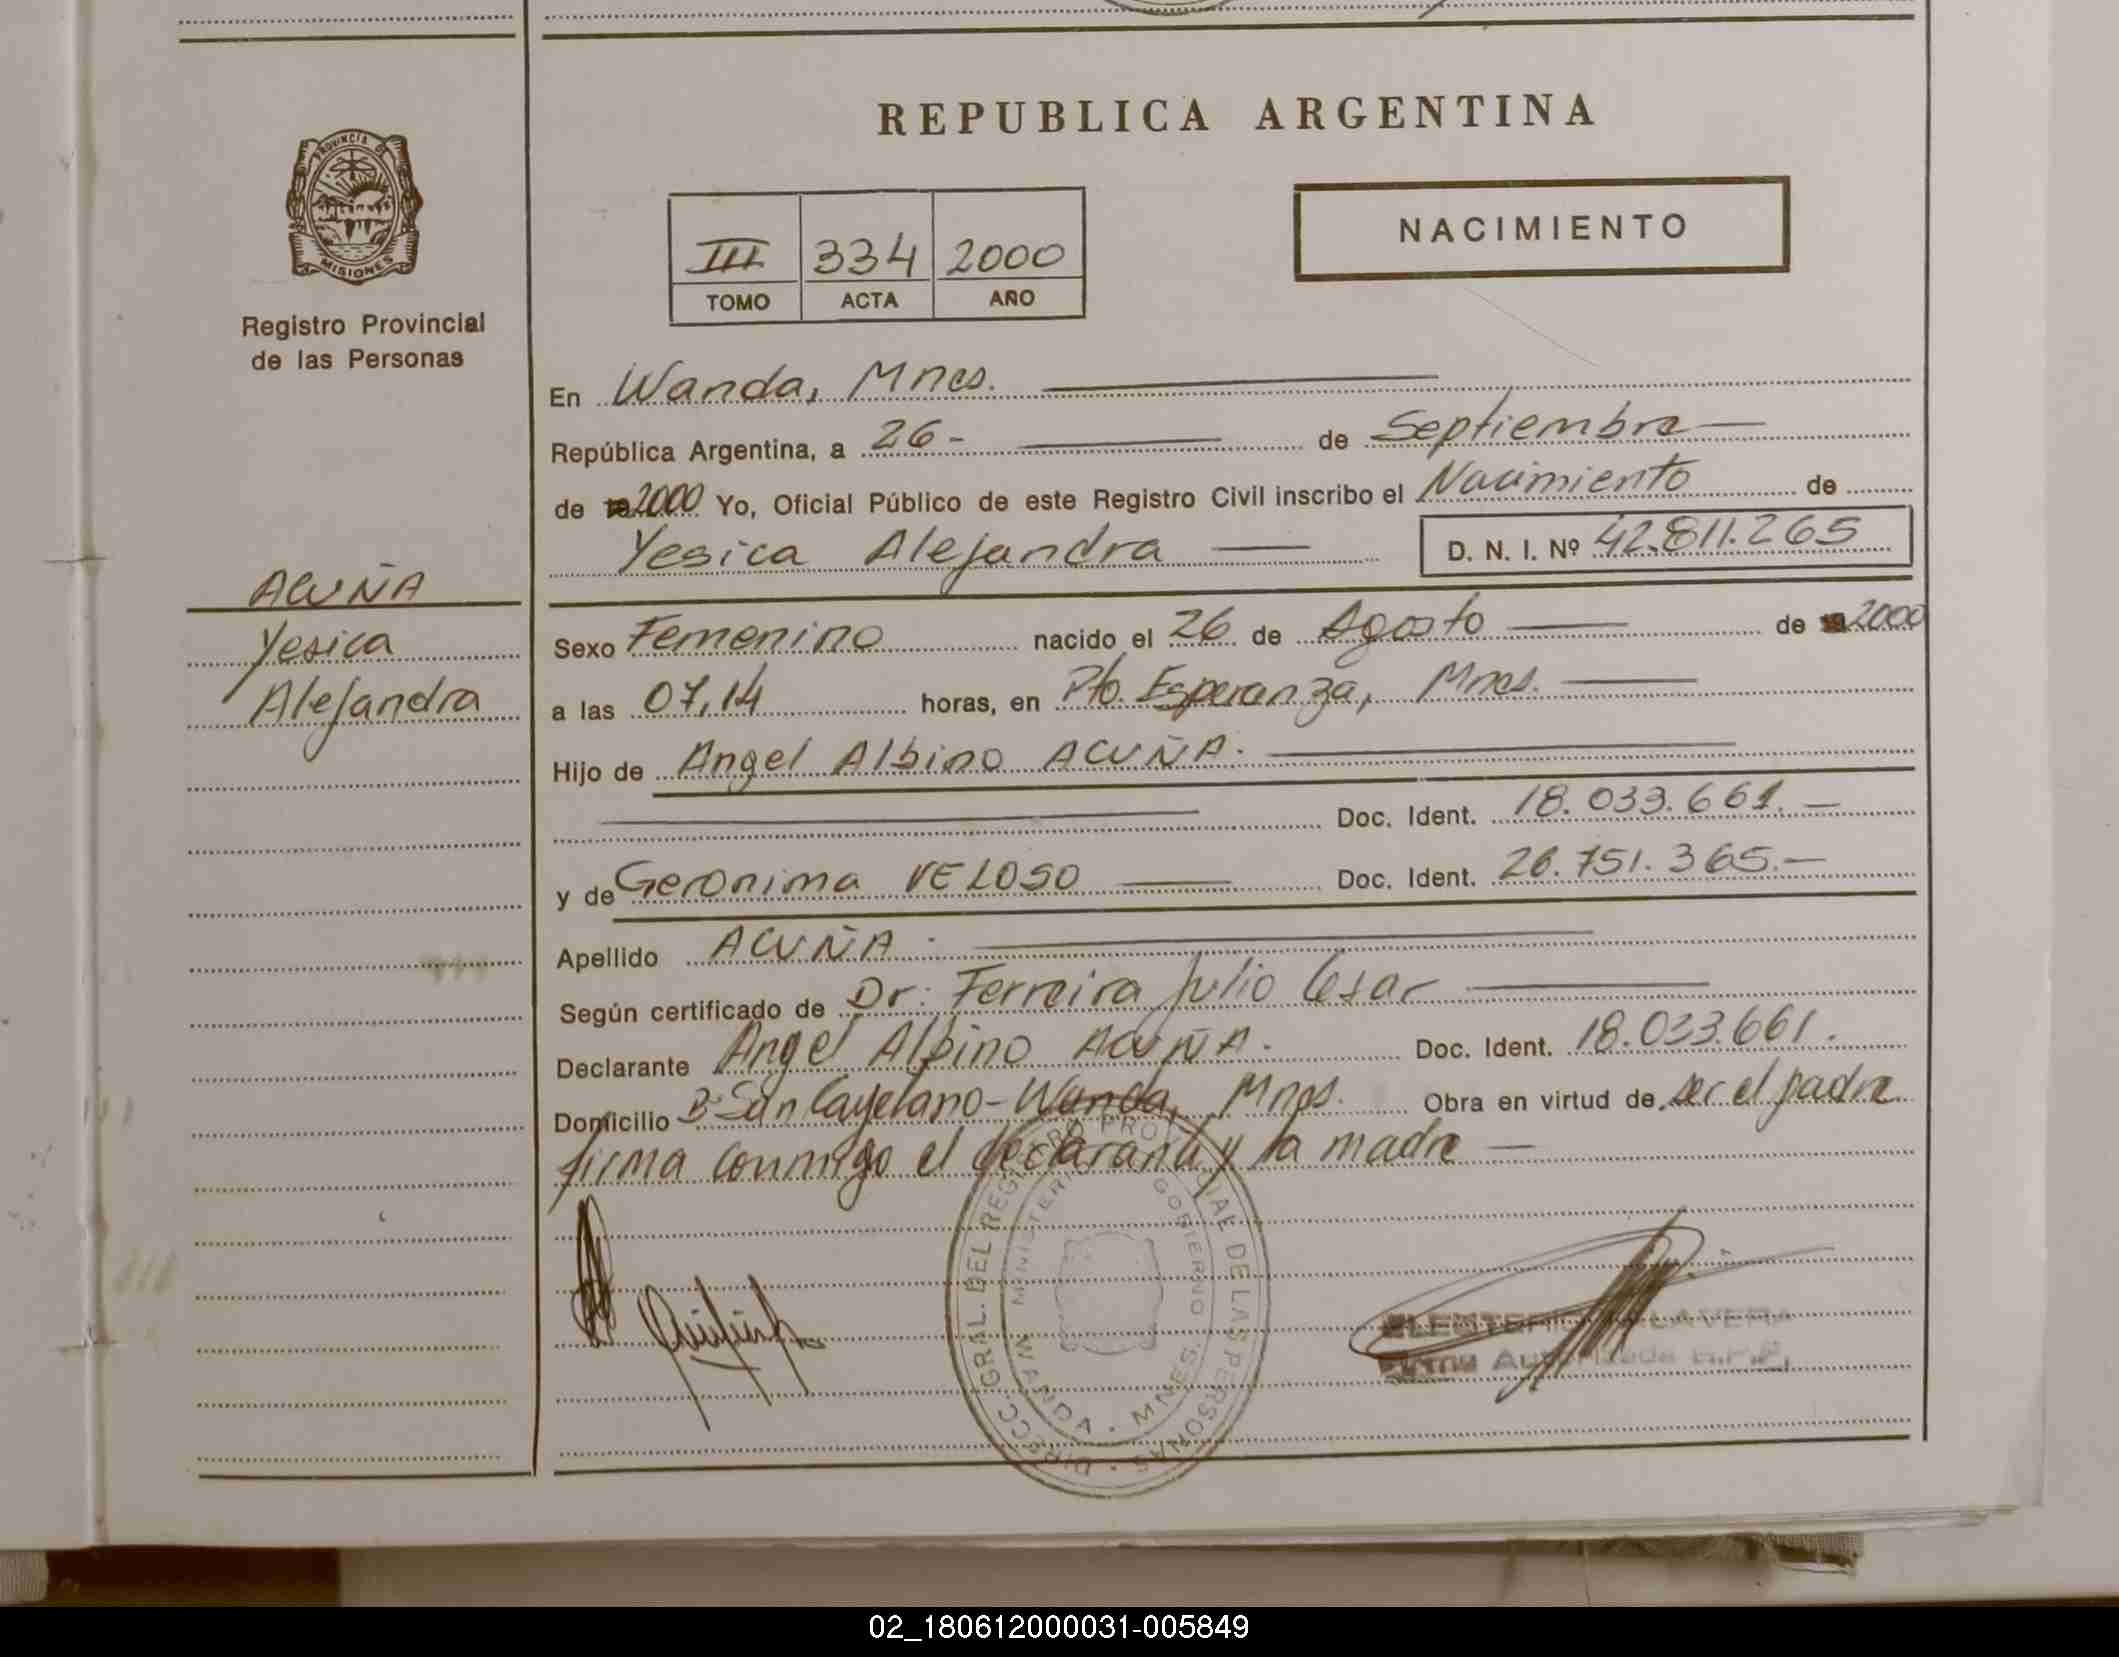 REPUBLICA ARGENTINA
PROVINCIA DE MISIONES
Registro Provincial
de las Personas
III 334 2000
TOMO ACTA AÑO
NACIMIENTO
En Wanda, Mnes.
República Argentina, a 26- de Septiembre
de 2000 Yo, Oficial Público de este Registro Civil inscribo el Nacimiento de
Yesica Alejandra D. N. I. Nº 42.811.265
ACUÑA
Yesica
Alejandra
Sexo Femenino nacido el 26 de Agosto de 2000
a las 07,14 horas, en Pto. Esperanza, Mnes.
Hijo de Angel Albino ACUÑA.
Doc. Ident. 18.033.661.
y de Geronima VELOSO Doc. Ident. 26.751.365.
Apellido ACUÑA.
Según certificado de Dr: Ferreira Julio Cesar
Declarante Angel Albino ACUÑA. Doc. Ident. 18.033.661.
Domicilio Bº San Cayetano-Wanda, Mnes. Obra en virtud de ser el padre
firma conmigo el declarant y la madre
DIRECC. GRAL. DEL REGISTRO PROVINCIAL DE LAS PERSONAS
MINISTERIO GOBIERNO
WANDA - MNES.
Firma Autorizada R.P.P.
02_180612000031-005849